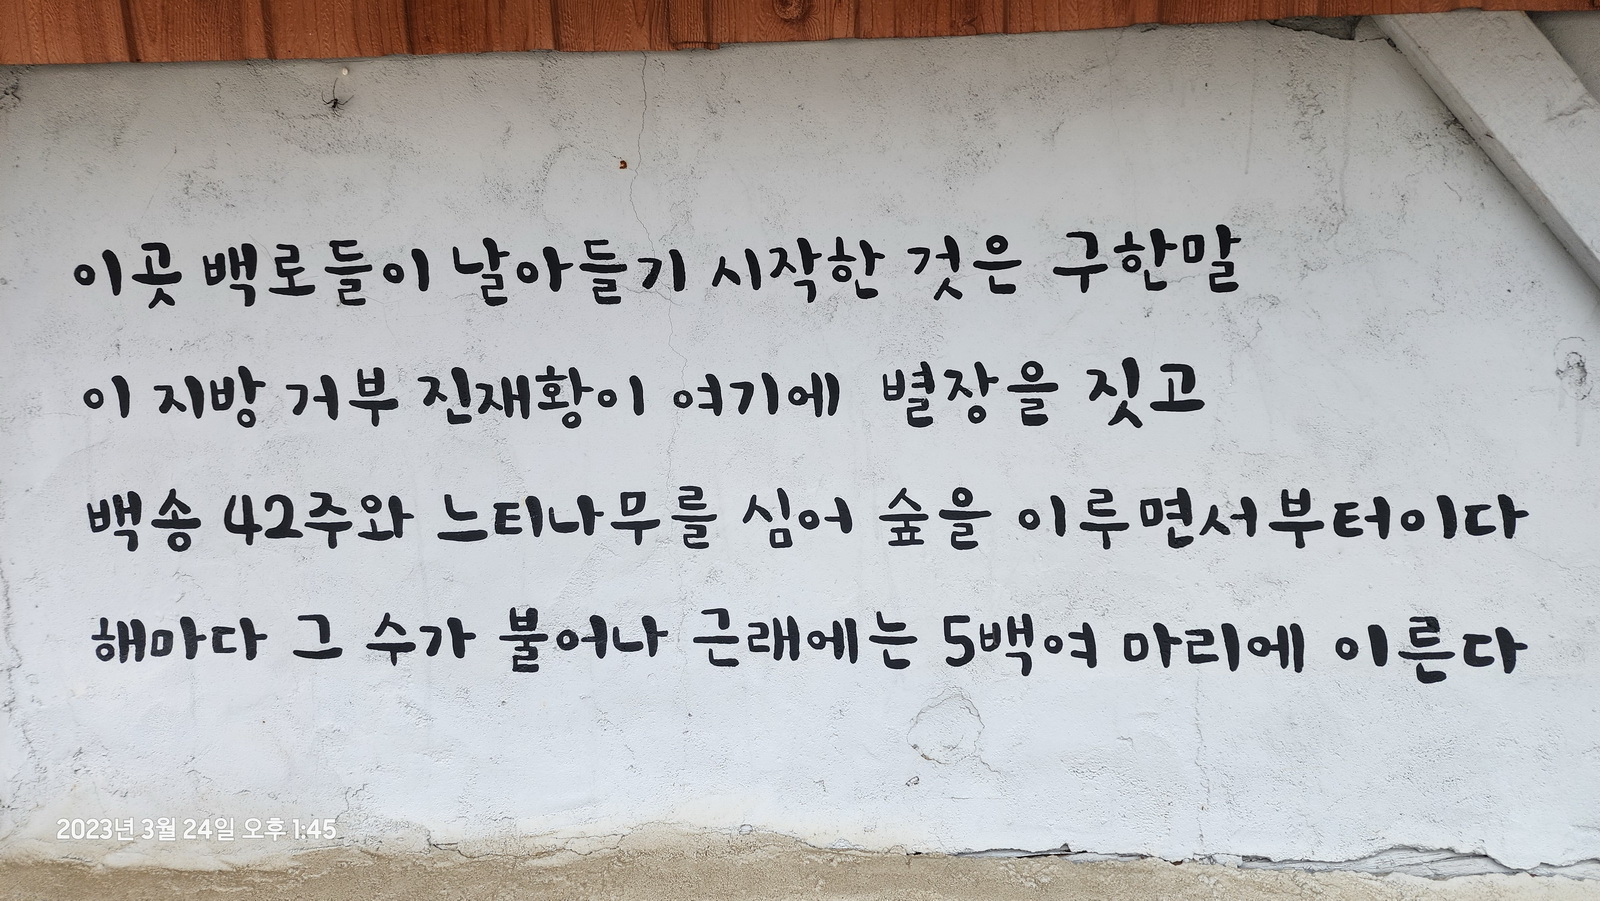 이곳 백로들이 날아들기 시작한 것은 구한말
이 지방 거부 진재황이 여기에 별장을 짓고
백송 42주와 느티나무를 심어 숲을 이루면서부터이다
해마다 그 수가 불어나 근래에는 5백여 마리에 이른다
2023년 3월 24일 오후 1:45